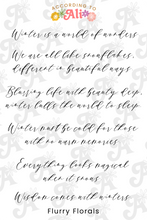 ACCORDING TO
Ali
Winter is a world of wonders
We are all like snowflakes,
different in beautiful ways
Blessing life with beauty deep,
winter lulls the world to sleep
Winter must be cold for those
with no warm memories
Everything looks magical
when it snows
Wisdom comes with winters
Flurry Florals